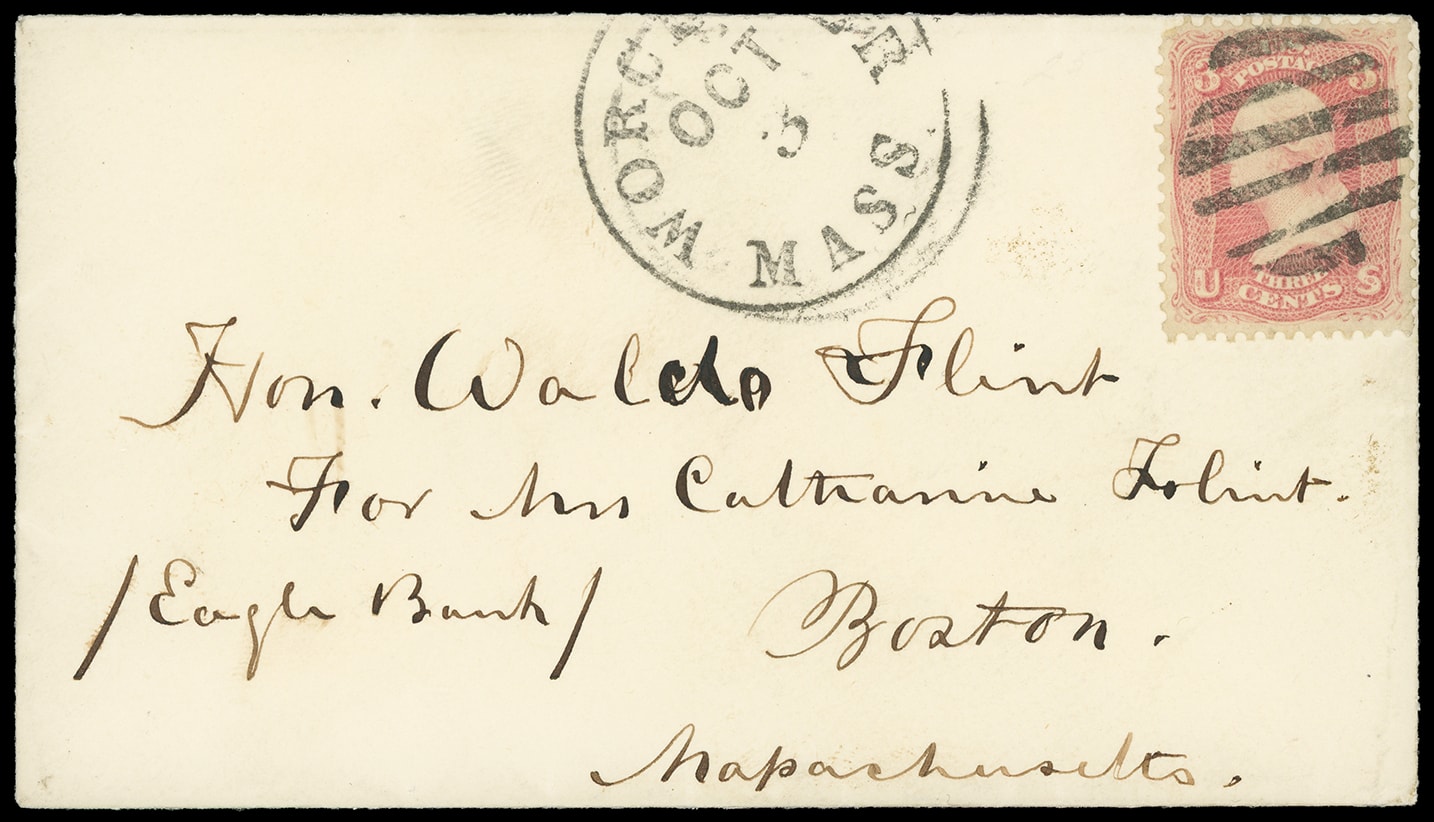 WORCESTER MASS
OCT
5
3 3
U.S. POSTAGE
U THREE S
CENTS
Hon. Waldo Flint
For Mrs Catharine Flint.
/Eagle Bank/ Boston.
Massachusetts.